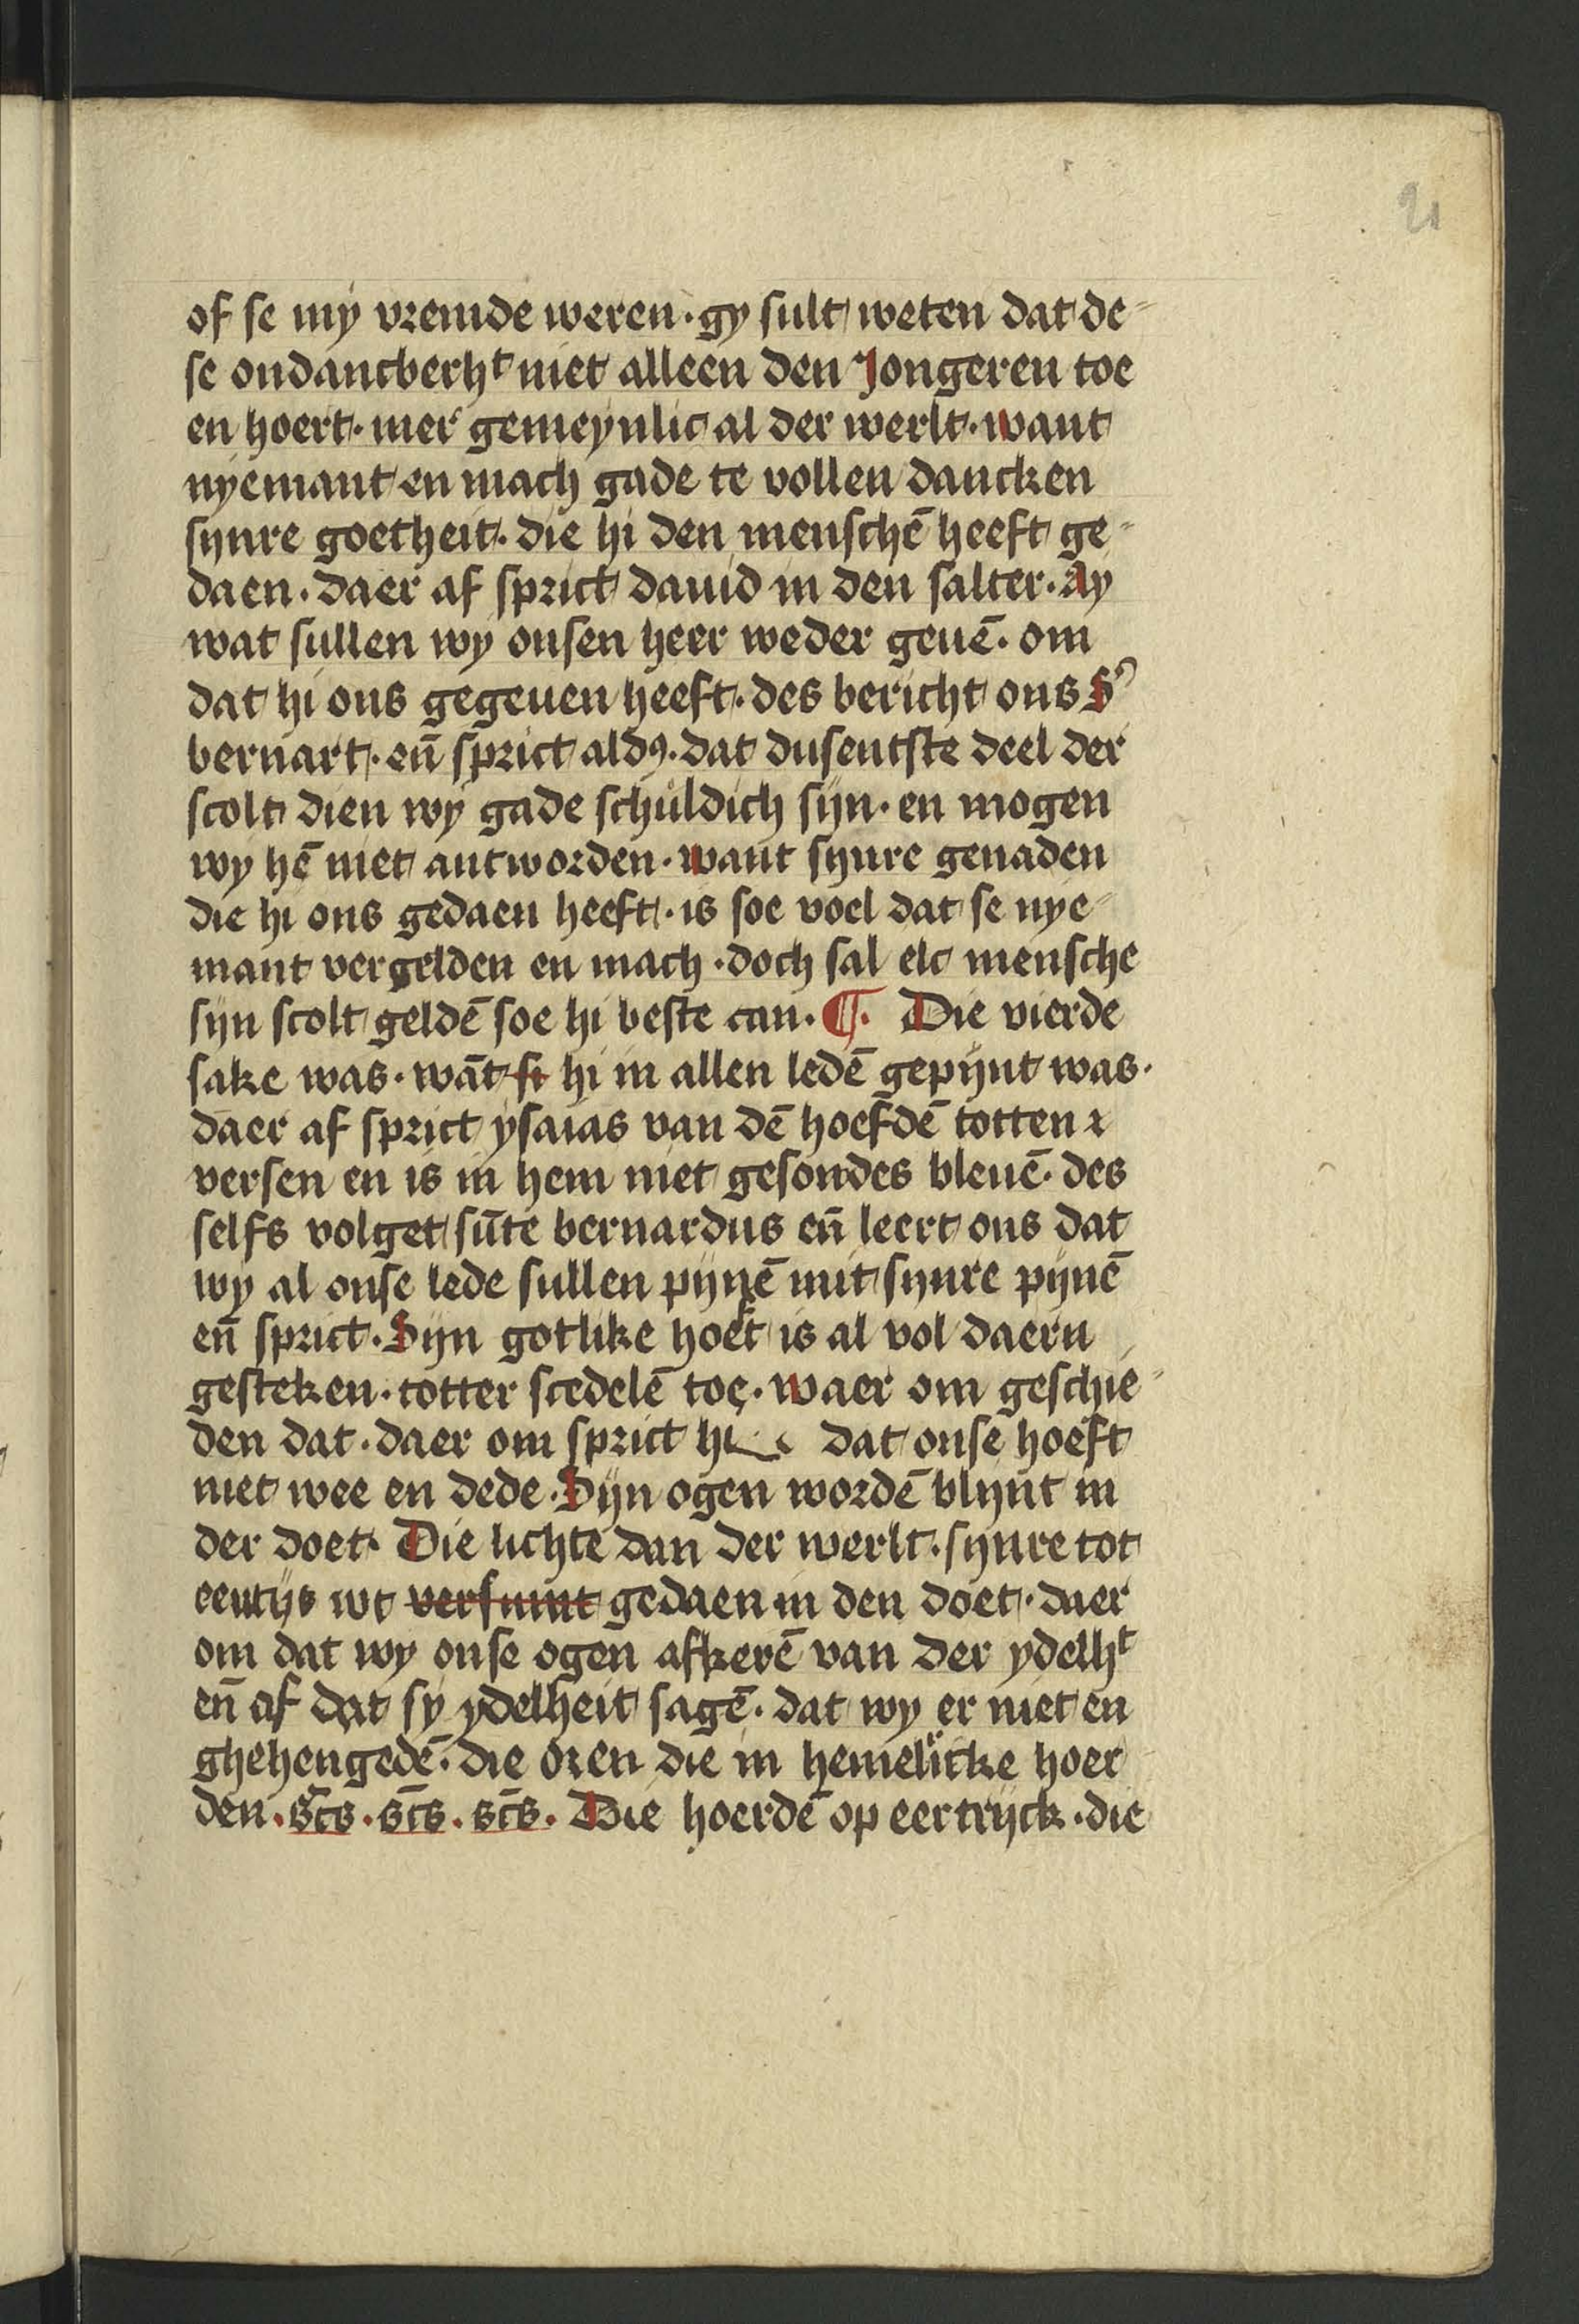 21
of se my vremde weren · gy sult weten dat de-
se ondancberhᵗ niet alleen den Jongeren toe
en hoert · mer gemeynlic al der werlt · want
nyemant en mach gade te vollen dancken
synre goetheit · die hi den menschē heeft ge-
daen · daer af sprict dauid in den salter · Ay
wat sullen wy onsen heer weder geuē · om
dat hi ons gegeuen heeft · des bericht ons S̓
bernart · en̄ sprict aldꝰ · dat dusentste deel der
scolt dien wy gade schůldich sijn · en mogen
wy hē niet antworden · want synre genaden
die hi ons gedaen heeft · is soe voel dat se nye-
mant vergelden en mach · doch sal elc mensche
sijn scolt geldē soe hi beste can · ¶ · Die vierde
sake was · wāt si hi in allen ledē gepijnt was ·
daer af sprict ysaias van dē hoefdē totten
versen en is in hem niet gesondes bleuē · des
selfs volget sūte bernardus en̄ leert ons dat
wy al onse lede sullen pijnē mit synre pijnē
en̄ sprict · Sijn gotlike hoeft is al vol daern
gesteken · totter scedelē toe · waer om geschie-
den dat · daer om sprict hi dat onse hoeft
niet wee en dede · Sijn ogen wordē blynt in
der doet · Die lichte dan der werlt · synre tot
eentijs wt versumt gedaen in den doet · daer
om dat wy onse ogen afkerē van der ydelhᵗ
en̄ af dat sy ydelheit sagē · dat wy er niet en
ghehengedē · die oren die in hemelricke hoer
den · sc̄s · sc̄s · sc̄s · Die hoerdē op eertrijck · die